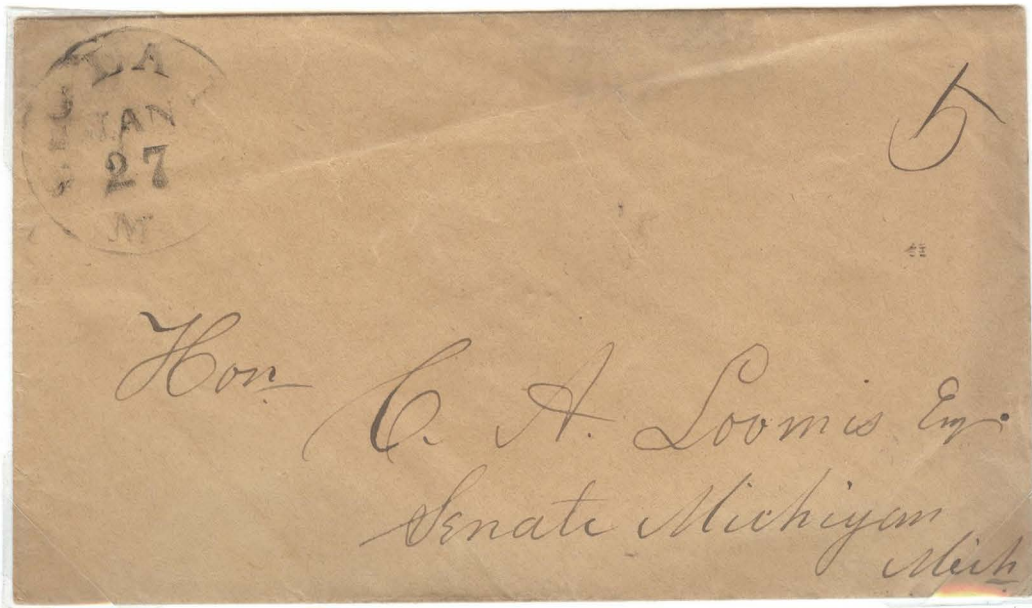 JAN
27
M
5
Hon
C. A. Loomis Esq.
Senate Michigan
Mich